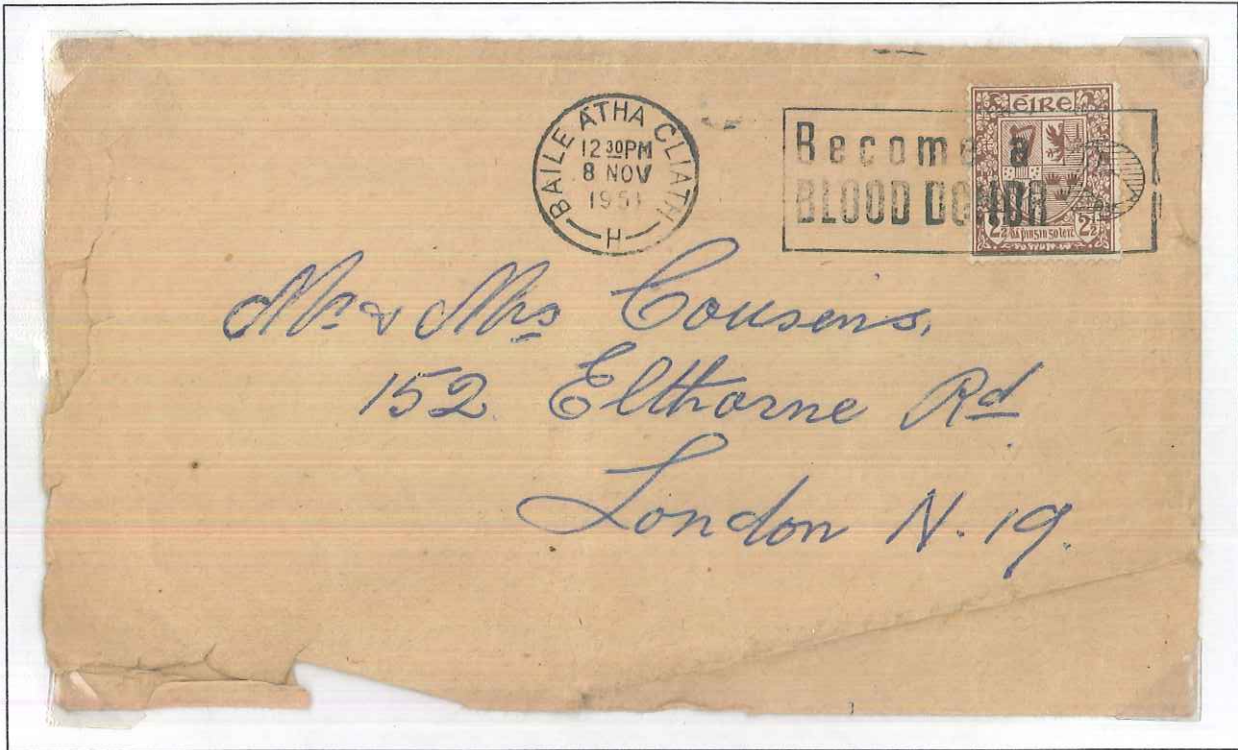 BAILE ÁTHA CLIATH
12 30PM
8 NOV
1951
H
Become a
BLOOD DONOR
éIRe
2½ 2½
Mr & Mrs Cousens,
152 Elthorne Rd
London N. 19.